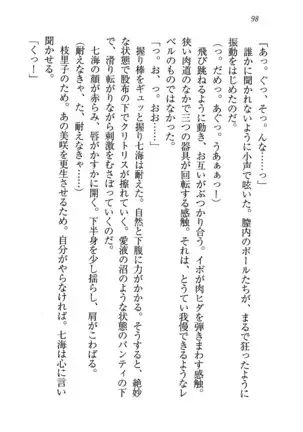 98
「あっ。ぐっ、そっ。んな……っ」
誰かに聞かれないように小声で呟いた。膣内のボールたちが、まるで狂ったように
振動をはじめたのだ。
「ぐっ。だめっ……あぁぁっ！」
飛び跳ねるように動き、お互いがぶつかり合う。イボが肉ヒダを弾きまわす感触。
狭い肉道のなかで三つの器具が回転する感触。それは、とうてい我慢できるようなレ
ベルのものではなかった。
「っ。お。っ。おお……」
握り棒をギュッと握り七海は耐えた。自然と下腹に力がかかる。そうすると、絶妙
な状態で股布の下でクリトリスが擦れていく。愛液の沼のような状態のパンティの下
で、滑り転がりながら刺激をむさぼっていくのだ。
七海の顔が赤らみ、唇がかすかに開く。下半身を少し揺らし、肩がこわばる。
（耐えなきゃ……た、耐えなきゃ……）
枝里子のため。あの美咲を更生させるため。自分がやらなければ。七海は心に言い
聞かせる。
「くっ！」